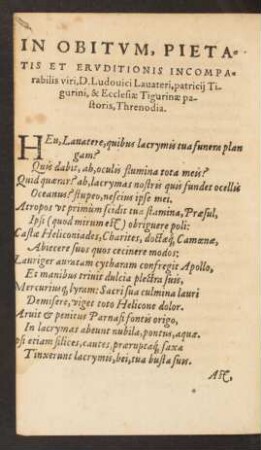 IN OBITVM, PIETA-
TIS ET ERVDITIONIS INCOMPA-
rabilis viri, D. Ludouici Lauateri, patricij Ti-
gurini, & Ecclesiæ Tigurinæ pa-
storis, Threnodia.
HEu, Lauatere, quibus lacrymis tua funera plan
gam?
Quis dabit, ah, oculis flumina tota meis?
Quid quærar? ah, lacrymas nostris quis fundet ocellis
Oceanus? stupeo, nescius ipse mei.
Atropos vt primùm scidit tua stamina, Præsul,
Ipsi (quod mirum est) obriguere poli:
Castæ Heliconiades, Charites, doctæq́; Camœnæ,
Abiecere suos quos cecinere modos:
Lauriger auratam cytharam confregit Apollo,
Et manibus triuit dulcia plectra suis.
Mercuriusq́; lyram: Sacri sua culmina lauri
Demisere, viget toto Helicone dolor.
Aruit & penitus Parnasi fontis origo,
In lacrymas abeunt nubila, pontus, aquæ.
Ipsi etiam silices, cautes, præruptaq́; saxa
Tinxerunt lacrymis, hei, tua busta suis.
Ast,